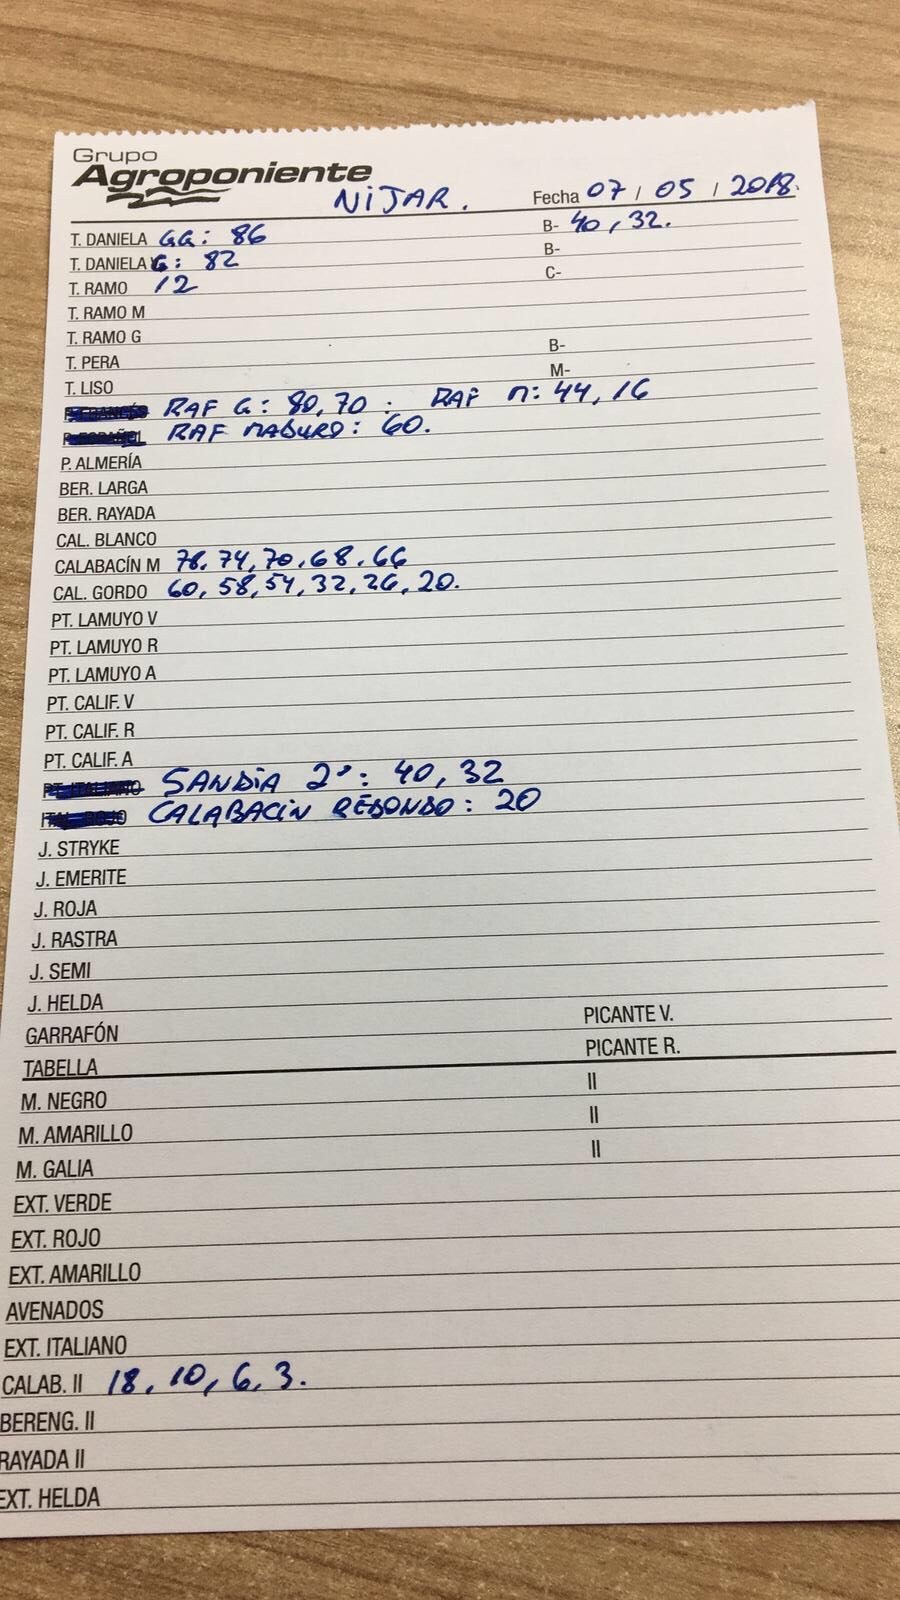 Grupo
Agroponiente
NIJAR. Fecha 07 / 05 / 2018.
T. DANIELA GG: 86 B- 40, 32.
T. DANIELA G: 82 B-
T. RAMO 12 C-
T. RAMO M
T. RAMO G
T. PERA B-
T. LISO M-
P. FRANCÉS RAF G: 80, 70 : RAF M: 44, 16
P. ESPAÑOL RAF MADURO: 60.
P. ALMERÍA
BER. LARGA
BER. RAYADA
CAL. BLANCO
CALABACÍN M 78, 74, 70, 68, 66
CAL. GORDO 60, 58, 54, 32, 26, 20.
PT. LAMUYO V
PT. LAMUYO R
PT. LAMUYO A
PT. CALIF. V
PT. CALIF. R
PT. CALIF. A
PT. ITALIANO SANDÍA 2ª: 40, 32
ITAL. ROJO CALABACÍN REDONDO: 20
J. STRYKE
J. EMERITE
J. ROJA
J. RASTRA
J. SEMI
J. HELDA
GARRAFÓN PICANTE V.
TABELLA PICANTE R.
M. NEGRO II
M. AMARILLO II
M. GALIA II
EXT. VERDE
EXT. ROJO
EXT. AMARILLO
AVENADOS
EXT. ITALIANO
CALAB. II 18, 10, 6, 3.
BERENG. II
RAYADA II
EXT. HELDA